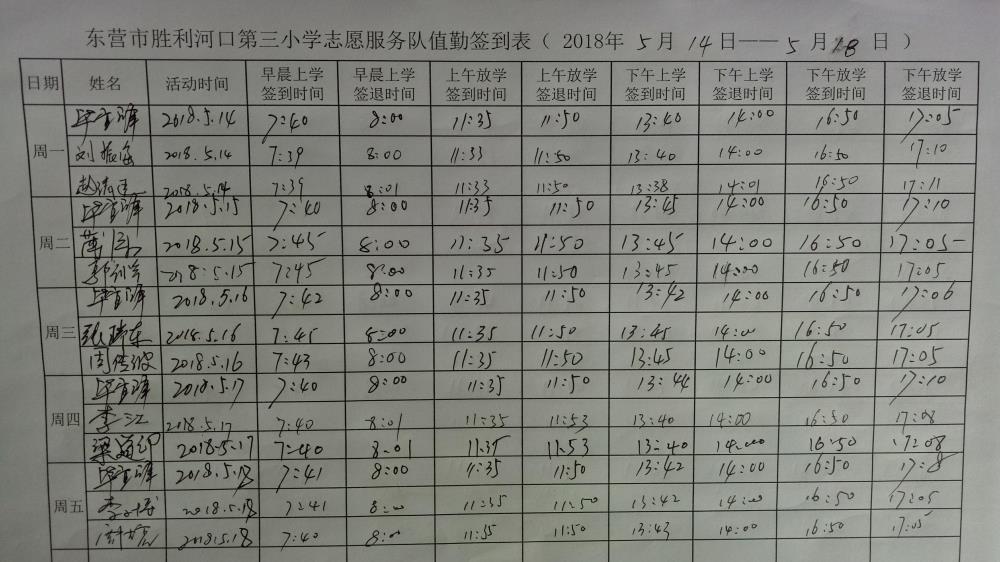 东营市胜利河口第三小学志愿服务队值勤签到表（ 2018年 5 月 14 日—— 5 月 18 日 ）
日期 姓名 活动时间 早晨上学签到时间 早晨上学签退时间 上午放学签到时间 上午放学签退时间 下午上学签到时间 下午上学签退时间 下午放学签到时间 下午放学签退时间
2018.5.14 7:40 8:00 11:35 11:50 13:40 14:00 16:50 17:05
周一 刘振海 2018.5.14 7:39 8:00 11:33 11:50 13:40 14:00 16:50 17:10
2018.5.14 7:39 8:01 11:33 11:50 13:38 14:01 16:50 17:11
2018.5.15 7:40 8:00 11:35 11:50 13:45 14:00 16:50 17:10
周二 2018.5.15 7:45 8:00 11:35 11:50 13:45 14:00 16:50 17:05
2018.5.15 7:45 8:00 11:35 11:50 13:45 14:00 16:50 17:05
2018.5.16 7:42 8:00 11:35 11:50 13:42 14:00 16:50 17:06
周三 张瑞东 2018.5.16 7:45 8:00 11:35 11:50 13:45 14:00 16:50 17:05
2018.5.16 7:43 8:00 11:35 11:50 13:45 14:00 16:50 17:05
2018.5.17 7:40 8:00 11:35 11:50 13:44 14:00 16:50 17:10
周四 李江 2018.5.17 7:40 8:01 11:35 11:53 13:40 14:00 16:50 17:08
2018.5.17 7:40 8:01 11:35 11:53 13:40 14:00 16:50 17:08
2018.5.18 7:41 8:00 11:35 11:50 13:42 14:00 16:50 17:8
周五 2018.5.18 7:41 8:00 11:35 11:50 13:42 14:00 16:50 17:05
2018.5.18 7:40 8:00 11:55 11:50 13:43 14:00 16:50 17:05